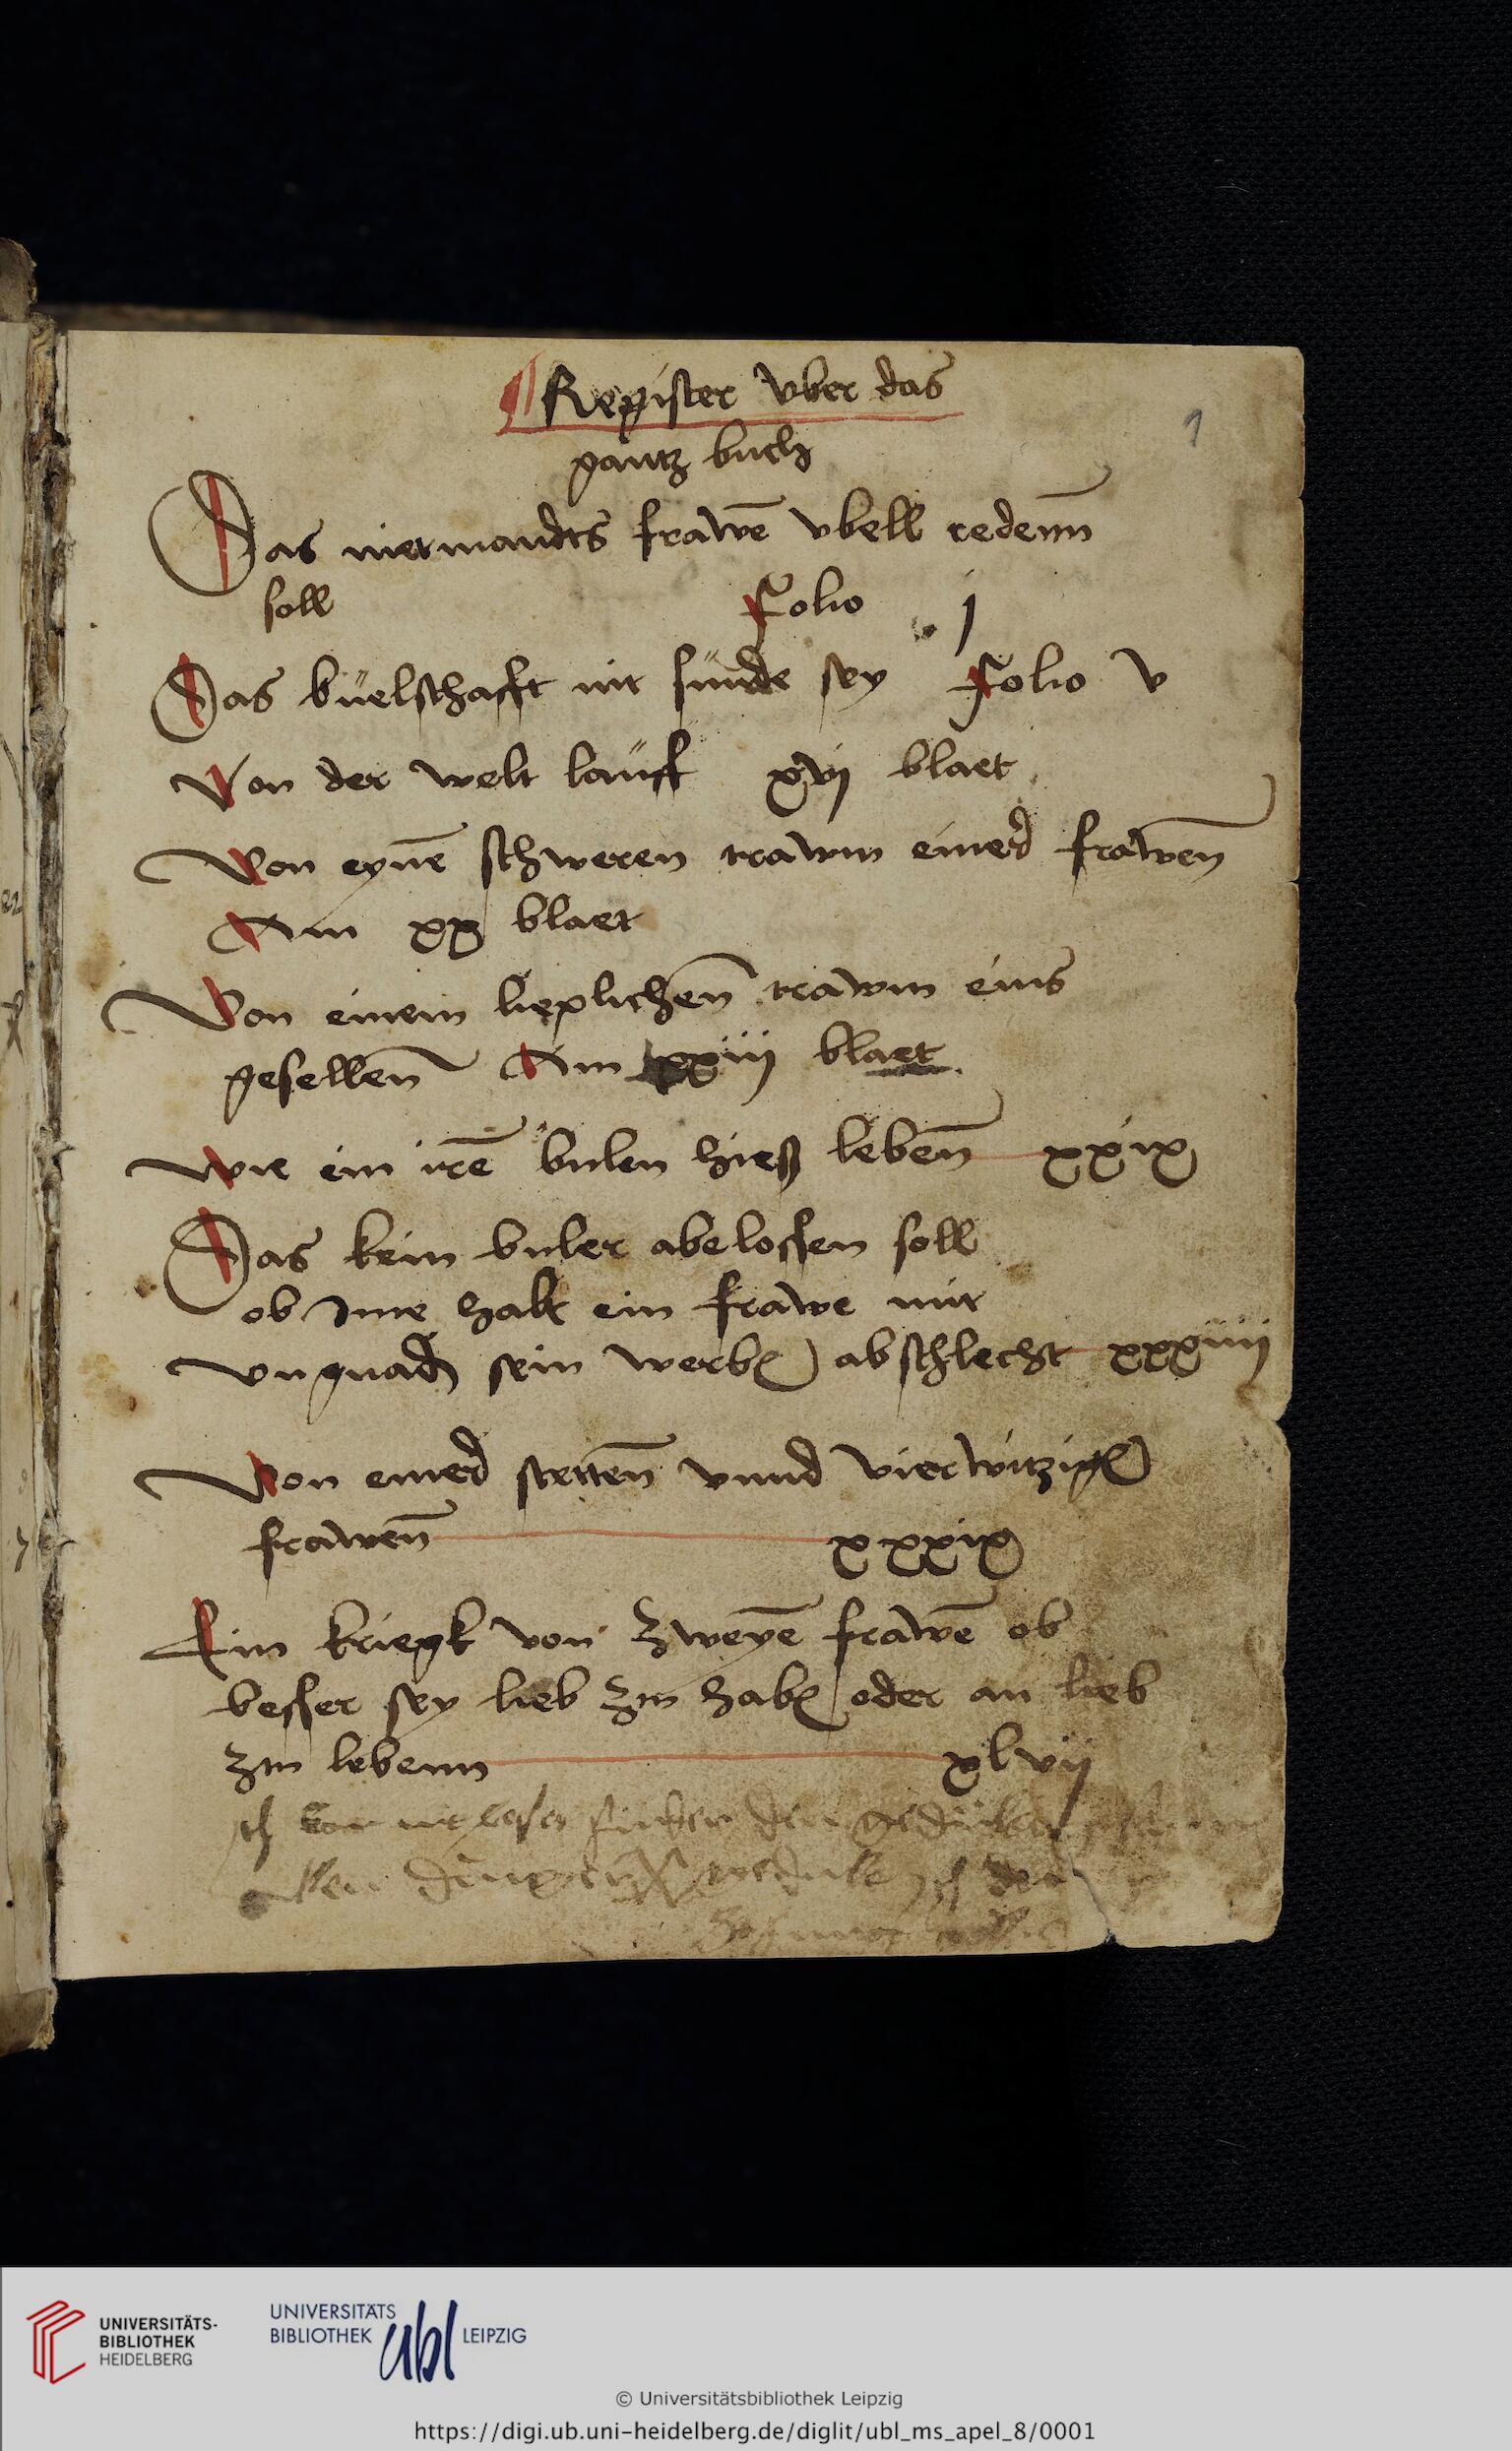 Register vber das
1
gantz buch
Das niermandts frawē vbell redenn̄
soll Folio j
Das büelschafft nit sünde sey Folio v
Von der welt lauff xvj blaet
Von eynē schweren trawm einer frawen̄
Am xx blaet
Von einem lieplichen̄ trawm eins
gesellen̄ Am xxiij blaet
Wie ein irē bulen hieß leben̄ xxix
Das kein buler abelossen soll
ob Ime halt ein frawe mit
vngnadn sein werbn abschlecht xxxiiij
Von einer stetten̄ vnnd vierwitzign
frawen̄ xxxix
Ein kriegk von zweyē frawē ob
besser sey lieb zw habn oder an lieb
zw lebenn xlvij
UNIVERSITÄTS-
BIBLIOTHEK
HEIDELBERG
UNIVERSITÄTS
BIBLIOTHEK ubl LEIPZIG
© Universitätsbibliothek Leipzig
https://digi.ub.uni-heidelberg.de/diglit/ubl_ms_apel_8/0001